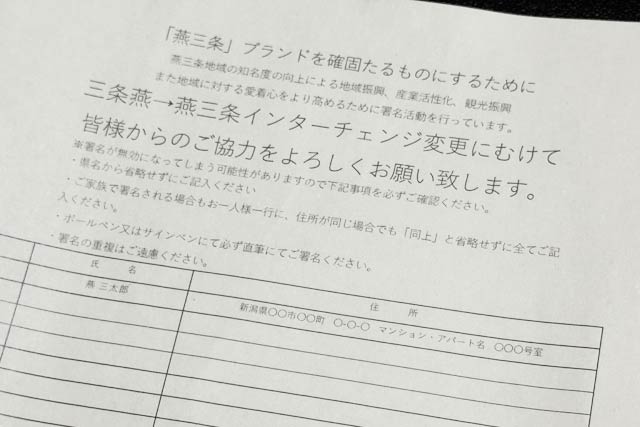 「燕三条」ブランドを確固たるものにするために
燕三条地域の知名度の向上による地域振興、産業活性化、観光振興
また地域に対する愛着心をより高めるために署名活動を行っています。
三条燕→燕三条インターチェンジ変更にむけて
皆様からのご協力をよろしくお願い致します。
※署名が無効になってしまう可能性がありますので下記事項を必ずご確認ください。
・県名から省略せずにご記入ください
・ご家族で署名される場合もお一人様一行に、住所が同じ場合でも「同上」と省略せずに全てご記
入ください。
・ボールペン又はサインペンにて必ず直筆にてご署名ください。
・署名の重複はご遠慮ください。
氏 名 住 所
燕 三太郎 新潟県〇〇市〇〇町 〇-〇-〇 マンション・アパート名 〇〇〇号室